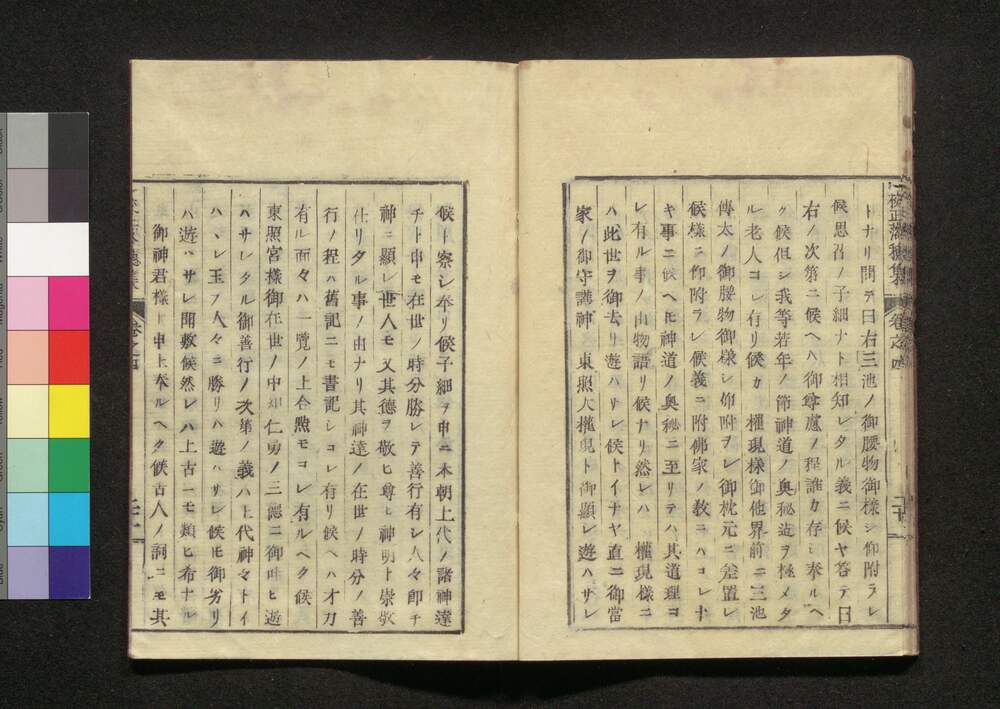 校正落穗集 卷之四
トナリ問テ曰右三池ノ御腰物御樣シ仰附ラレ
候思召ノ子細ナト相知レタル義ニ候ヤ答テ曰
右ノ次第ニ候ヘハ御尊慮ノ程誰カ存シ奉ルヘ
ク候但シ我等若年ノ節神道ノ奥秘迄ヲ極メタ
ル老人コレ有リ候カ 權現樣御他界前ニ三池
傳太ノ御腰物御樣シ仰附ラレ御枕元ニ差置レ
候樣ニ仰附ラレ候義ニ附佛家ノ敎ニハコレナ
キ事ニ候ヘトモ神道ノ奥秘ニ至リテハ其道理コ
レ有ル事ノ由物語リ候ナリ然レハ 權現樣ニ
ハ此世ヲ御去リ遊ハサレ候トイナヤ直ニ御當
家ノ御守護神 東照大權現ト御顯レ遊ハサレ
候ト察シ奉リ候子細ヲ申ニ本朝上代ノ諸神達
チト申モ在世ノ時分勝レテ善行有シ人々即チ
神ニ顯レ世人モ又其德ヲ敬ヒ尊ヒ神明ト崇敬
仕リタル事ノ由ナリ其神達ノ在世ノ時分ノ善
行ノ程ハ舊記ニモ書記シコレ有リ候ヘハ才力
有ル面々ハ一覽ノ上合點モコレ有ルヘク候
東照宮樣御在世ノ中知仁勇ノ三德ニ御叶ヒ遊
ハサレタル御善行ノ次第ノ義ハ上代神々トイ
ハヽレ玉フ人々ニ勝リハ遊ハサレ候モ御劣リ
ハ遊ハサレ間敷候然レハ上古ニモ類ヒ希ナル
御神君樣ト申上奉ルヘク候古人ノ詞ニモ其
卷之四